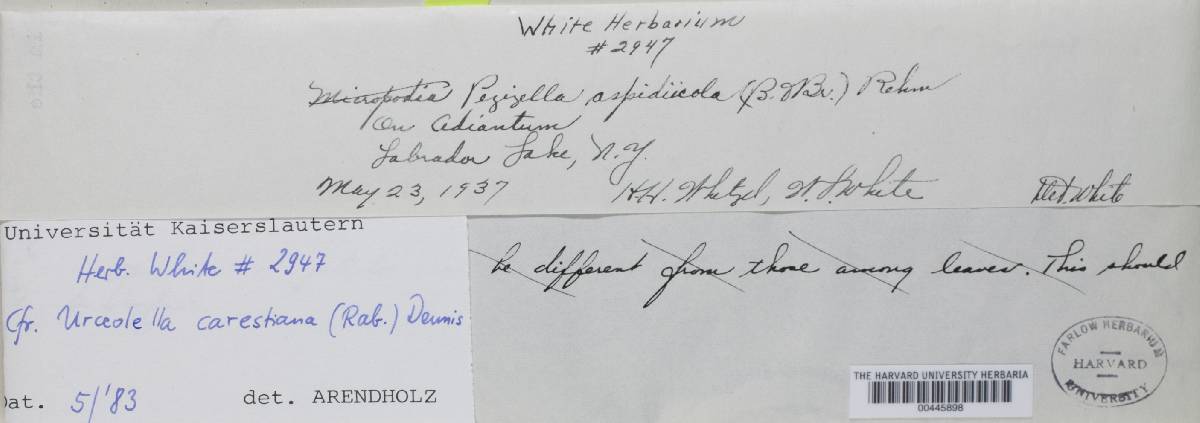 White Herbarium
# 2947
Micropodia Pezizella aspidiicola (B. & Br.) Rehm
On Adiantum
Labrador Lake, N.Y.
May 23, 1937 H.H. Whetzel, W.L. White Det. White
Universität Kaiserslautern
Herb. White # 2947
Cfr. Urceolella carestiana (Rab.) Dennis
Dat. 5/'83 det. ARENDHOLZ
be different from those among leaves. This should
FARLOW HERBARIUM
HARVARD
UNIVERSITY
THE HARVARD UNIVERSITY HERBARIA
00445898